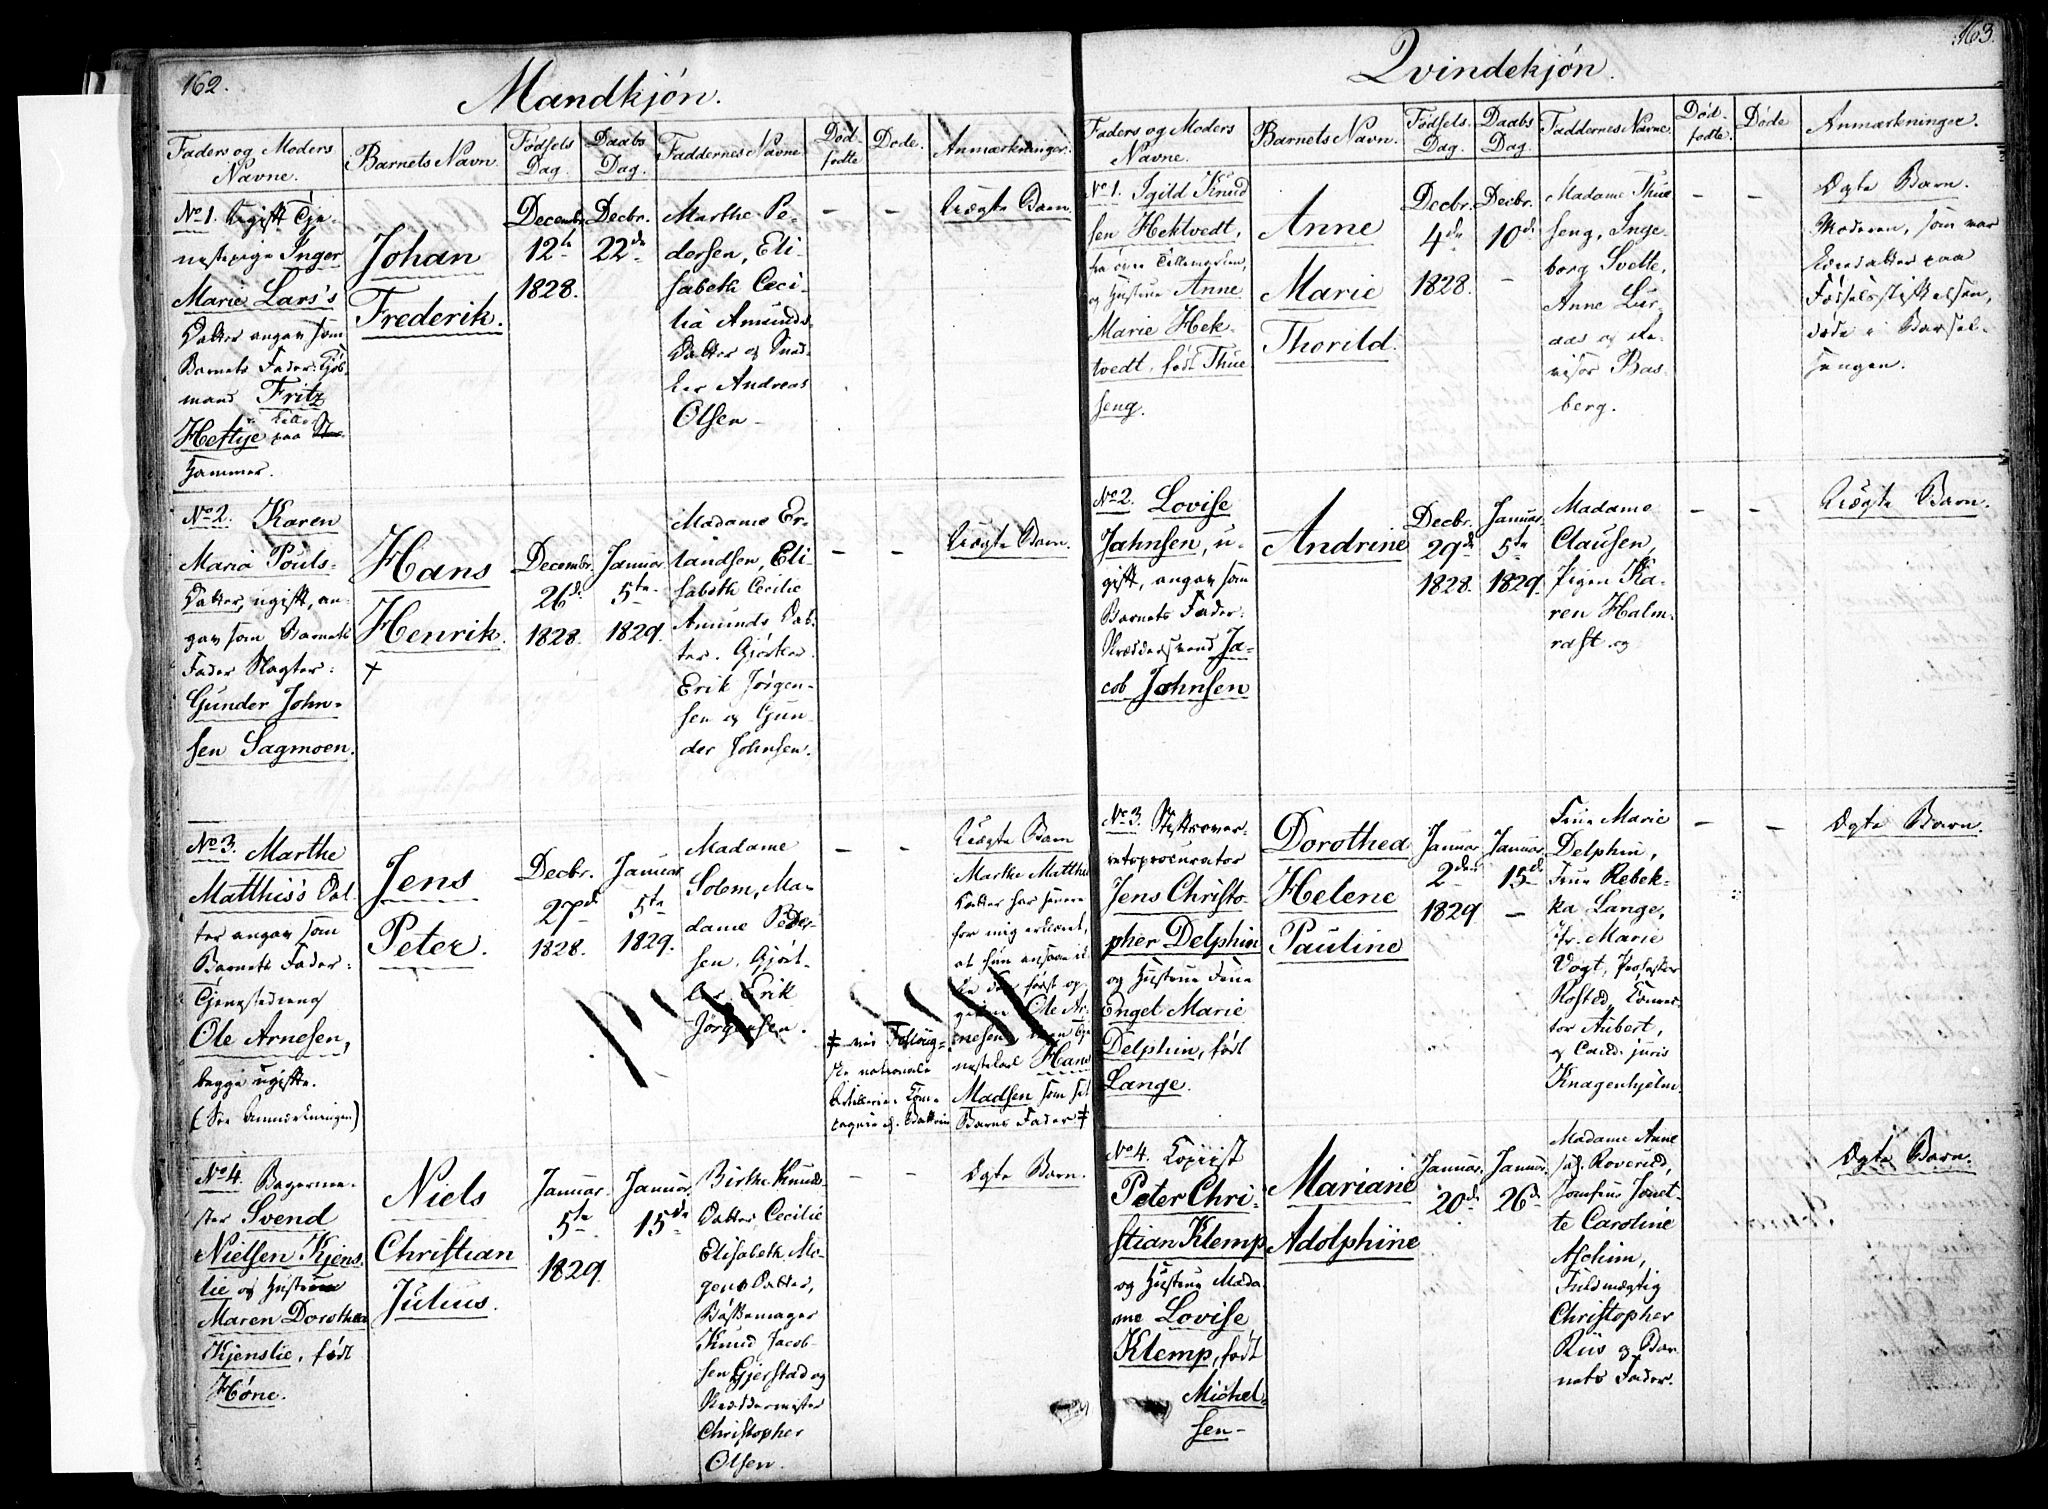 162.
Mandkjón.
Faders og Moders
Navne.
Barnets Navn.
Födsels
Dag.
Daabs
Dag.
Faddernes Navne
Död-
fødte
Døde.
Anmærkninger.
No 1. Ugift Tje-
nestepige Inger
Marie Lars's
Datter angav som
Barnets Fader: Kjöb-
mand Fritz
Heftye paa
hammer.
Johan
Frederik.
Decembr.
12te
1828.
Decbr.
22de
Marthe Pe-
dersen, Eli-
sabeth Ceci-
lia Amunds-
Datter og
Andreas
Olsen –
–
–
Uægte Barn.
No 2. Karen
Maria Pouls-
Datter, ugift, an-
gav som Barnets
Fader Slagter:
Gunder John-
sen Sagmoen.
Hans
Henrik.
+
Decembr.
26de
1828.
Januar
5te
1829.
Madame Er-
landsen, Eli-
sabeth Cecilie
Amunds Dat-
ter. Gjörtler
Erik Jörgen-
sen og Gun-
der Johnsen.
–
–
Uægte Barn.
No 3. Marthe
Matthis's Dat-
ter angav som
Barnets Fader:
Ole Arnesen,
begge ugifte.
(See Anmærkningen)
Jens
Peter.
Decbr.
27de
1828.
Januar
5te
1829.
Madame
Solem, Ma-
dame Peder-
sen, Gjört-
ler Erik
Jörgensen.
–
–
Uægte Barn
Marthe Matthis
Datter har senere
for mig erklæret,
at hun
den först op-
givne Ole Ar-
nesen, men
Hans
Madsen som sit
Barns Fader ‡
‡
nationale
Artillerie-
No 4. Bagerme-
ster Svend
Nielsen Kjens-
lie og Hustrue
Maren Dorothea
Kjenslie, född
Höne.
Niels
Christian
Julius.
Januar.
5te
1829.
Januar.
15de
Birthe Knuds-
Datter Cecilie
Elisabeth Mo-
gens Datter,
Bössemager
Knud Jacob-
sen Gjerstad og
Skræddermester
Christopher
Olsen.
–
–
Ægte Barn.
163.
Qvindekjön.
Faders og Moders
Navne.
Barnets Navn.
Födsels
Dag.
Daabs
Dag.
Faddernes Navne.
Död-
fødte.
Døde
Anmærkninger.
No 1. Igild Knud
sen Hektvedt,
fra övre Tellemarken,
og Hustrue Anne
Marie Hek-
tvedt, född Thue
seng.
Anne
Marie
Thorild.
Decbr.
4de
1828.
Decbr.
10de
–
Madame Thue
seng, Inge-
borg Svette,
Anne Lur-
aas og Re-
visor Bas-
berg.
–
–
Ægte Barn.
Moderen, som var
paa
Födselsstiftelsen,
döde i Barsel-
sengen.
No 2. Lovise
Jahnsen, u-
gift, angav som
Barnets Fader:
Skræddersvend Ja-
cob Johnsen
Andrine
Decbr.
29de
1828.
Januar.
5te
1829.
Madame
Clausen,
Pigen Ka-
ren Halm-
rast. og
–
–
Uægte Barn.
No 3. Stiftsover-
retsprocurator
Jens Christo-
pher Delphin
og Hustrue Frue
Engel Marie
Delphin, född
Lange.
Dorothea
Helene
Pauline
Januar
2den
1829
Januar.
15de
–
Frue Marie
Delphin,
Frue Rebek-
ka Lange,
Fr. Marie
Vogt, Professor
Rosted,
Aubert,
og Cand. juris
Knagenhjelm.
–
–
Ægte Barn.
No 4. Copiist
Peter Chri-
stian Klemp
og Hustrue Mada-
me Lovise
Klemp, född
Michel-
sen –
Mariane
Adolphine
Januar.
20de
Januar.
26de
Madame Anne
Roverud,
Jomfrue Jenet-
te Caroline
Aschim,
Fuldmægtig
Christopher
Riis og Bar
nets Fader.
Ægte Barn.